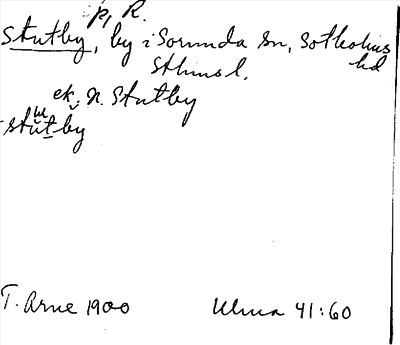 p, R.
Stutby, by i Sorunda sn, Sotholms
hd
Sthms l.
ek. n. Stutby
stutby
T. Arne 1900 Ulma 41:60